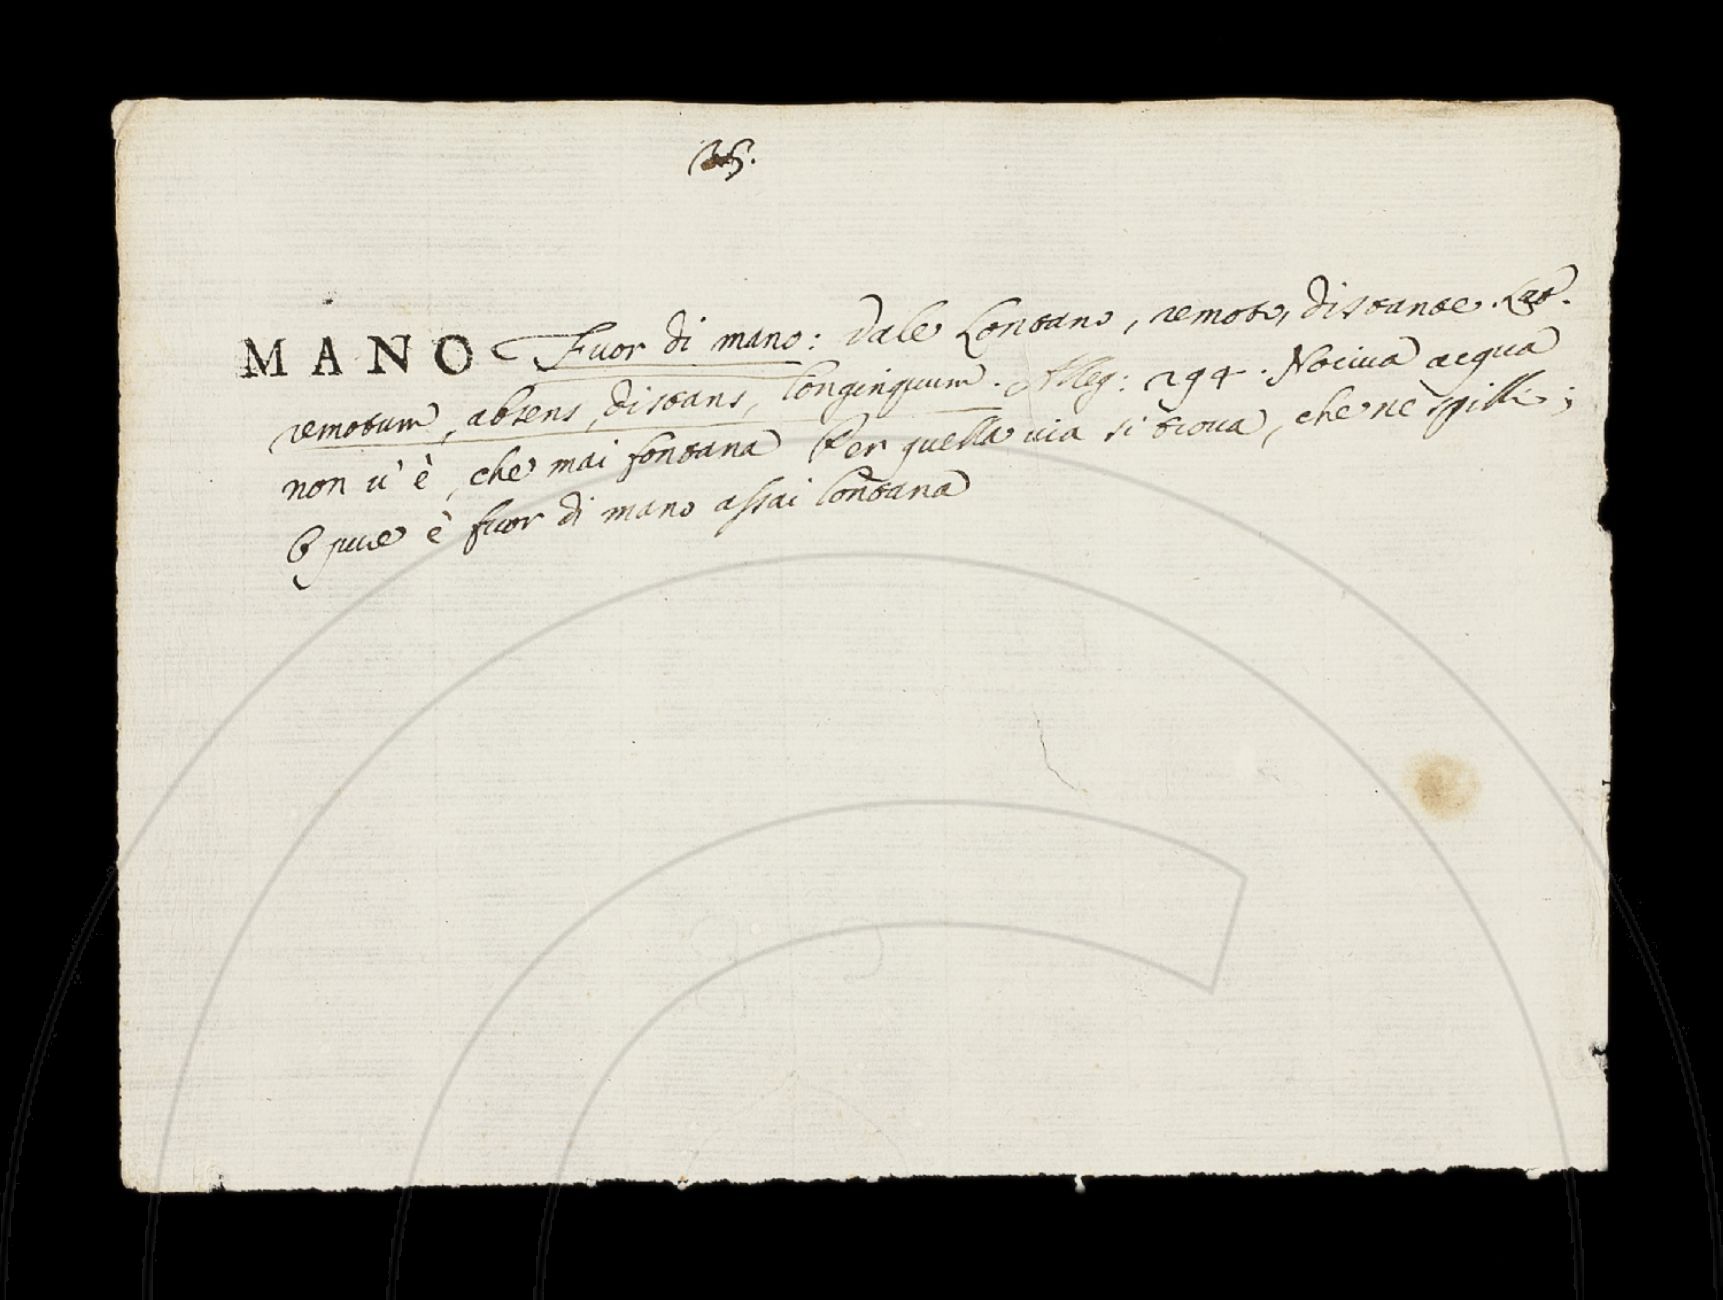 MANO Fuor di mano: Vale Lontano, remoto, distante. Lat.
remotum, absens, distans, longinquum. Alleg: 294. Nociva acqua
non u' è, che mai fontana Per quella uia si troua, che nè spilli;
O pure è fuor di mano assai lontana